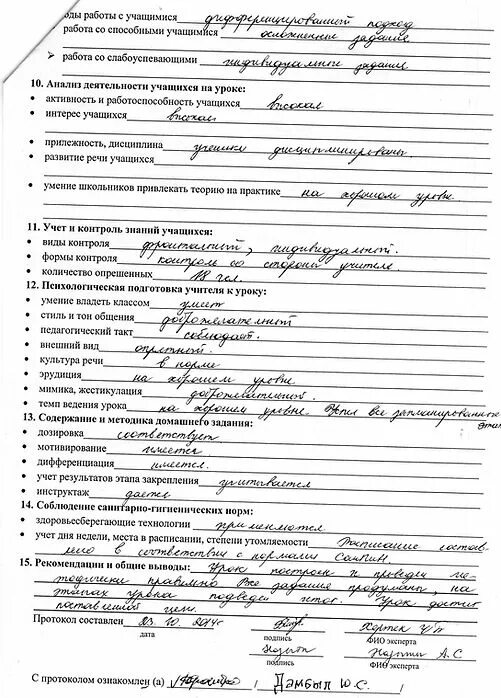 оды работы с учащимися дифференцированный подход
работа со способными учащимися осложненные задание
➢ работа со слабоуспевающими индивидуальные задание
10. Анализ деятельности учащихся на уроке:
• активность и работоспособность учащихся высокая
• интерес учащихся высокий
• прилежность, дисциплина ученики дисциплинированы.
• развитие речи учащихся
• умение школьников привлекать теорию на практике на хорошем уровне
11. Учет и контроль знаний учащихся:
• виды контроля фронтальный, индивидуальный.
• формы контроля контроль со стороны учителя
• количество опрошенных 18 чел.
12. Психологическая подготовка учителя к уроку:
• умение владеть классом умеет
• стиль и тон общения доброжелательный
• педагогический такт соблюдает.
• внешний вид опрятный.
• культура речи в норме
• эрудиция на хорошем уровне
• мимика, жестикуляция доброжелательный.
• темп ведения урока на хорошем уровне. Успел все запланированные
этап
13. Содержание и методика домашнего задания:
• дозировка соответствует
• мотивирование имеется
• дифференциация имеется.
• учет результатов этапа закрепления учитывается
• инструктаж дается
14. Соблюдение санитарно-гигиенических норм:
• здоровьесберегающие технологии применяются.
• учет дня недели, места в расписании, степени утомляемости Расписание состав-
лено в соответствии с нормами СанПиН.
15. Рекомендации и общие выводы: Урок построен и проведен ме-
тодически правильно Все задание продуманы, на
этапах урока подведен итог. Урок достиг
поставленной цели.
Протокол составлен 23. 10. 2014г
дата подпись ФИО эксперта
А.С.
подпись ФИО эксперта
С протоколом ознакомлен (а) / Дамбыл Ю.С.